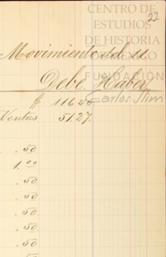 CENTRO DE
ESTUDIOS
DE HISTORIA
DE MÉXICO
FUNDACIÓN
Carlos Slim
22
Movimiento del 11
Debe Haber
$ 116
Ventas 5127
.50
1.00
.50
.50
.50
.50
.50
.50